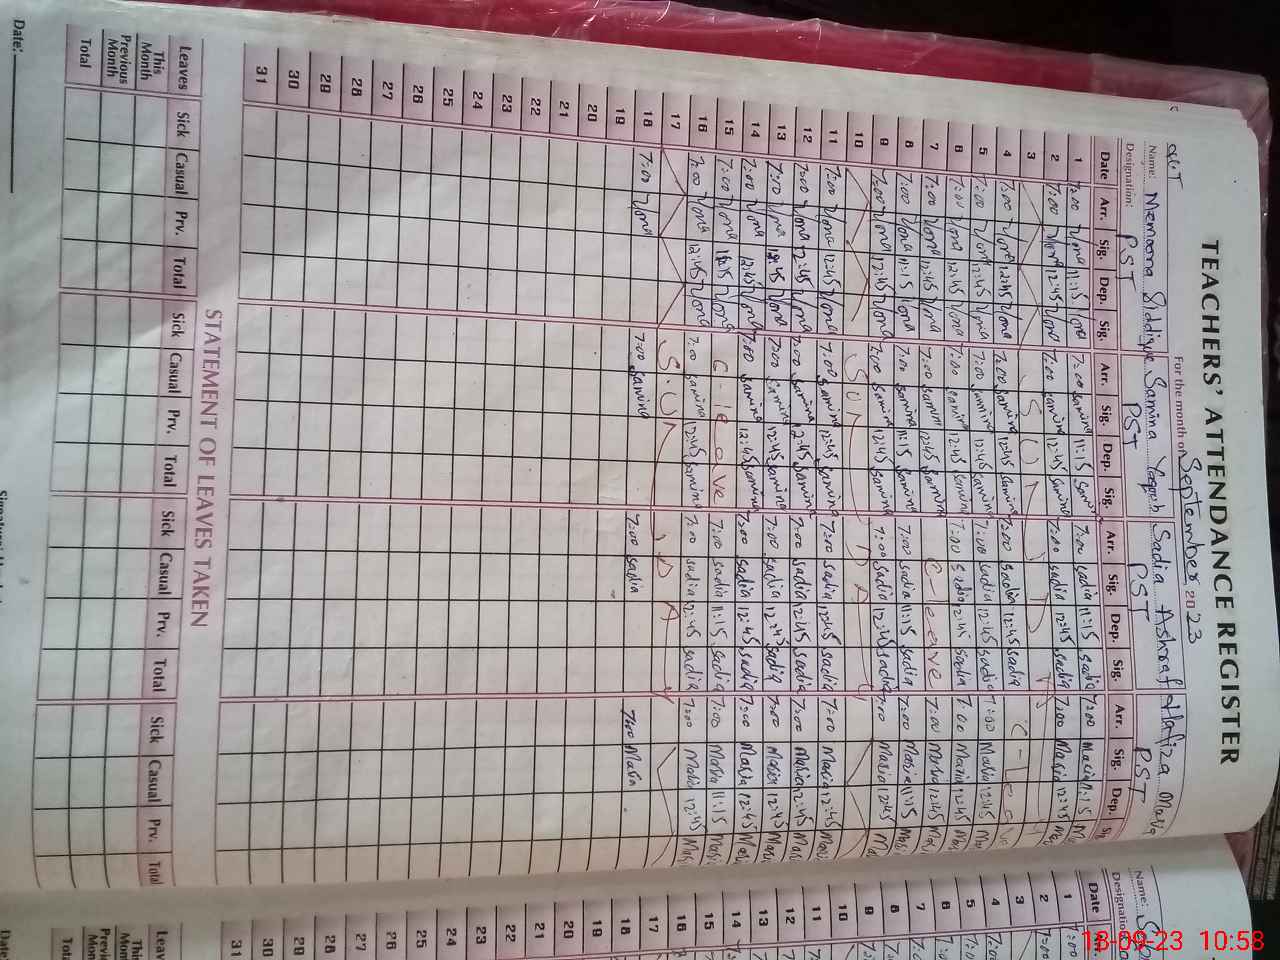 TEACHERS' ATTENDANCE REGISTER
For the month on September 2023
Name: Memoona Siddique Samina Sadia Ashraf Hafiza Maria
Designation: PST PST PST PST
Date Arr. Sig. Dep. Sig. Arr. Sig. Dep. Sig. Arr. Sig. Dep. Sig. Arr. Sig. Dep.
1 7:00 11:15 7:00 Samina 11:15 Samina 7:00 Sadia 11:15 Sadia 7:00 Maria 11:15
2 7:00 12:45 7:00 Samina 12:45 Samina 7:00 Sadia 12:45 Sadia 7:00 Maria 12:45
3 SUNDAY
4 7:00 12:45 7:00 Samina 12:45 Samina 7:00 Sadia 12:45 Sadia C-Leave
5 7:00 12:45 7:00 Samina 12:45 Samina 7:00 Sadia 12:45 Sadia 7:00 Maria 12:45
6 7:00 12:45 7:00 Samina 12:45 Samina 7:00 Sadia 12:45 Sadia 7:00 Maria 12:45
7 7:00 12:45 7:00 Samina 12:45 Samina C-leave 7:00 Maria 12:45
8 7:00 11:15 7:00 Samina 11:15 Samina 7:00 Sadia 11:15 Sadia 7:00 Maria 11:15
9 7:00 12:45 7:00 Samina 12:45 Samina 7:00 Sadia 12:45 Sadia 7:00 Maria 12:45
10 SUNDAY
11 7:00 12:45 7:00 Samina 12:45 Samina 7:00 Sadia 12:45 Sadia 7:00 Maria 12:45
12 7:00 12:45 7:00 Samina 12:45 Samina 7:00 Sadia 12:45 Sadia 7:00 Maria 12:45
13 7:00 12:45 7:00 Samina 12:45 Samina 7:00 Sadia 12:45 Sadia 7:00 Maria 12:45
14 7:00 12:45 7:00 Samina 12:45 Samina 7:00 Sadia 12:45 Sadia 7:00 Maria 12:45
15 7:00 11:15 C-leave 7:00 Sadia 11:15 Sadia 7:00 Maria 11:15
16 7:00 12:45 7:00 Samina 12:45 Samina 7:00 Sadia 12:45 Sadia 7:00 Maria 12:45
17 SUNDAY
18 7:00 7:00 Samina 7:00 Sadia 7:00 Maria
19
20
21
22
23
24
25
26
27
28
29
30
31
STATEMENT OF LEAVES TAKEN
Leaves Sick Casual Prv. Total Sick Casual Prv. Total Sick Casual Prv. Total Sick Casual Prv. Total
This Month
Previous Month
Total
Date:
Name:
Date
1
2
3
4
5
6
7
8
9
10
11
12
13
14
15
16
17
18
19
20
21
22
23
24
25
26
27
28
29
30
31
18-09-23 10:58